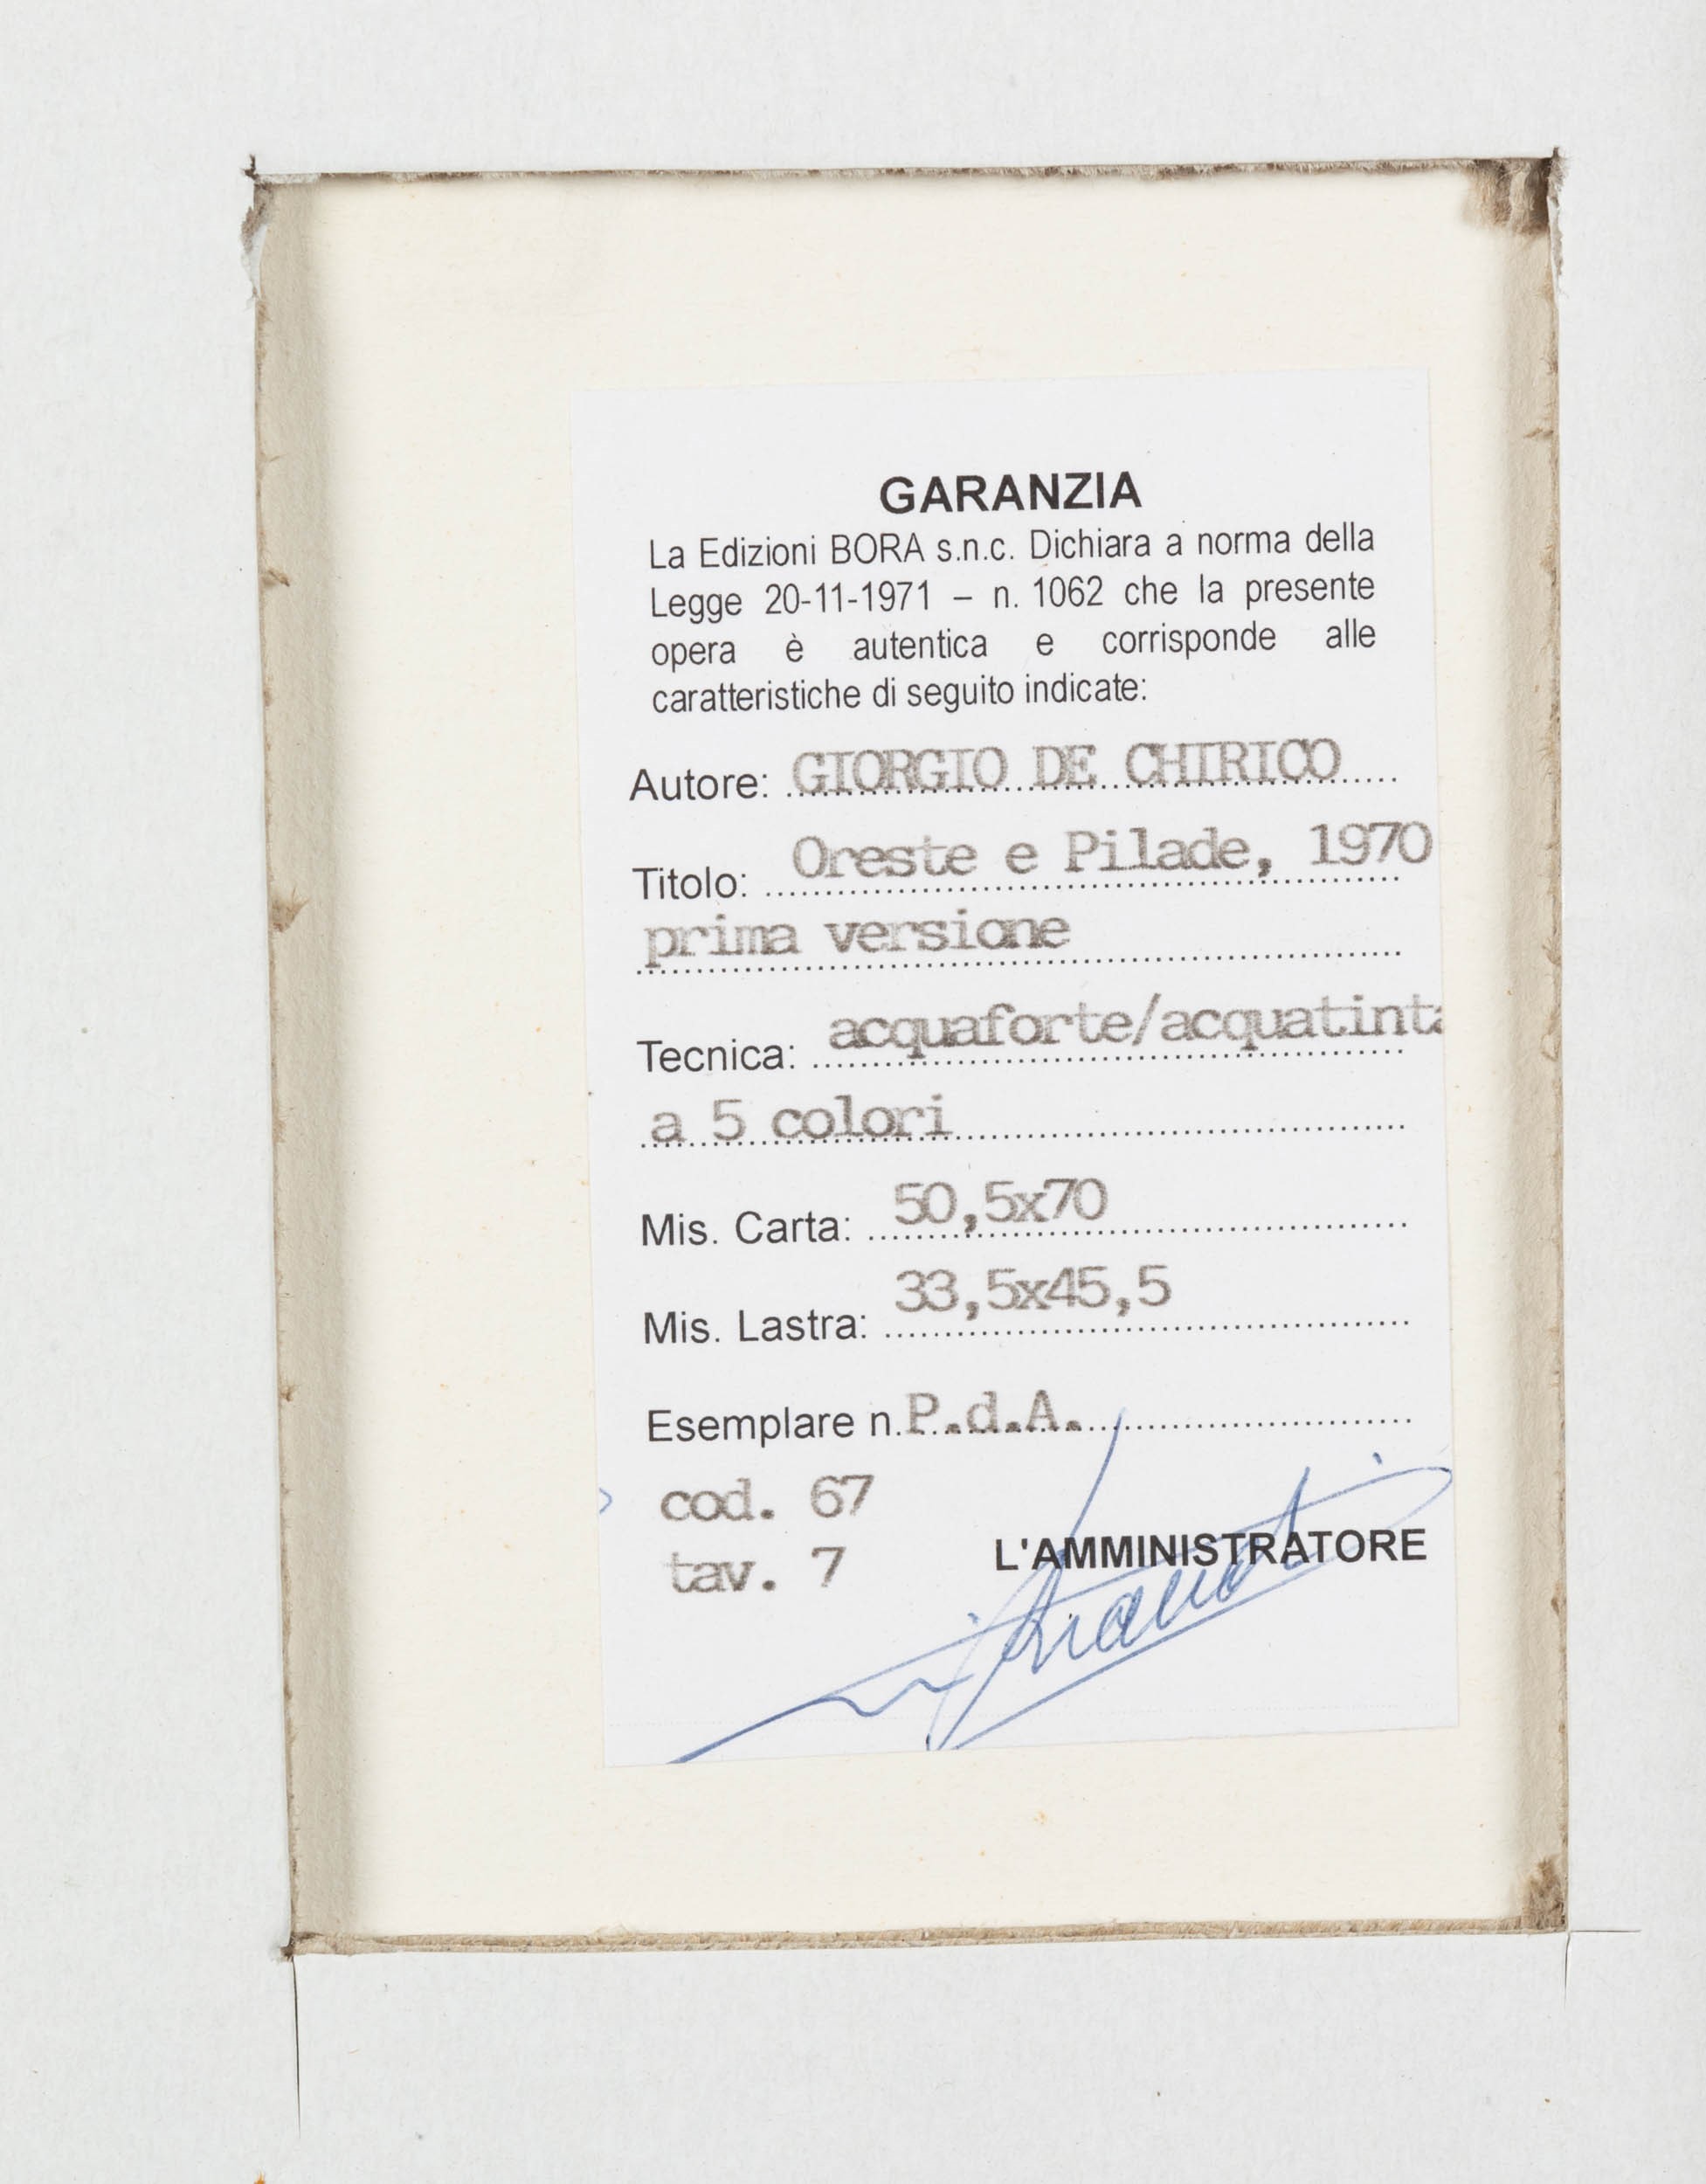 GARANZIA
La Edizioni BORA s.n.c. Dichiara a norma della
Legge 20-11-1971 – n. 1062 che la presente
opera è autentica e corrisponde alle
caratteristiche di seguito indicate:
Autore: GIORGIO DE CHIRICO
Titolo: Oreste e Pilade, 1970
prima versione
Tecnica: acquaforte/acquatinta
a 5 colori
Mis. Carta: 50,5x70
Mis. Lastra: 33,5x45,5
Esemplare n. P.d.A.
cod. 67
tav. 7
L'AMMINISTRATORE